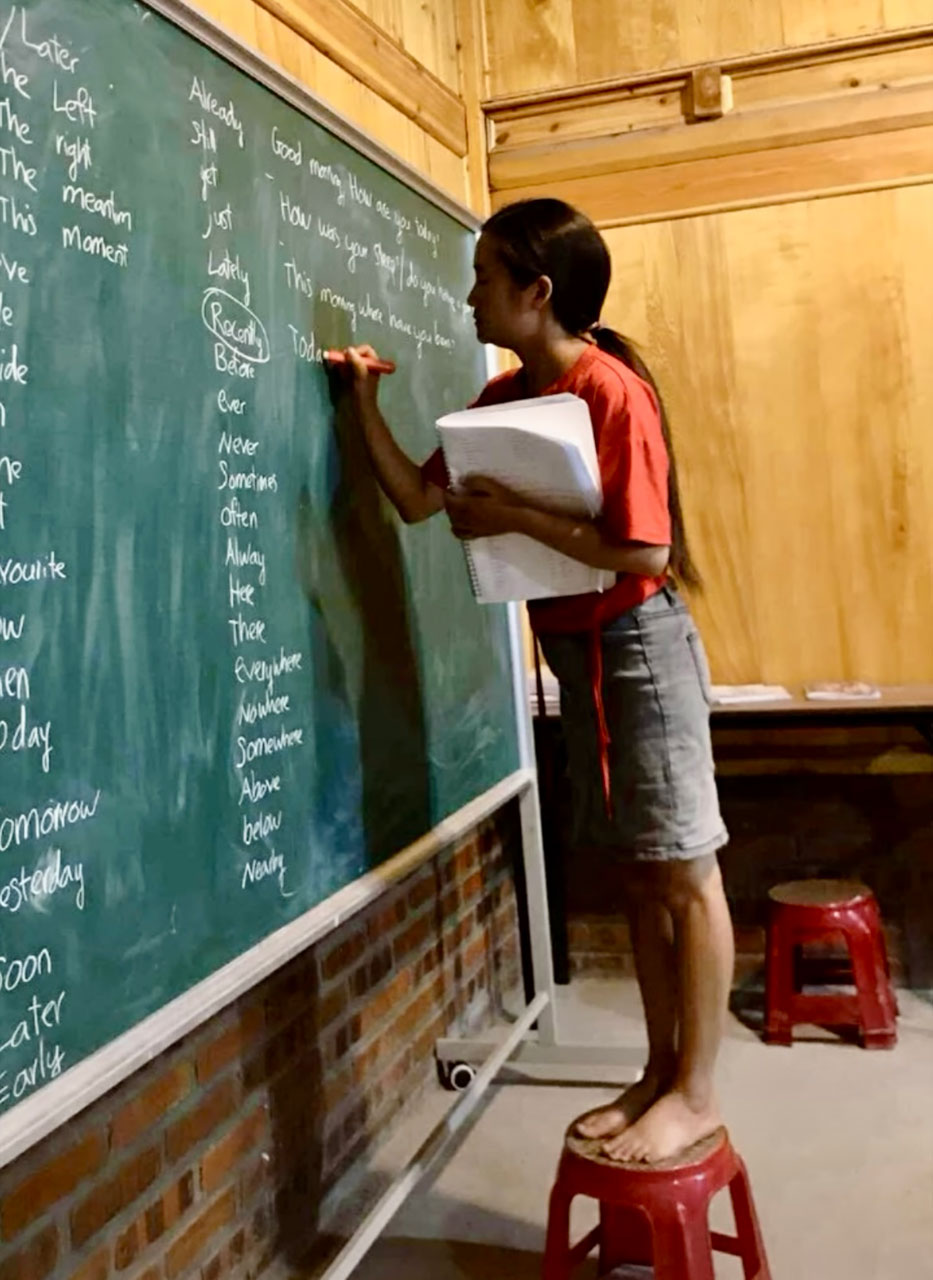 /Later
he Left
The right
The meantim
This moment
've
le
ide
n
he
t
vourite
ow
en
oday
omorrow
esterday
Soon
Later
Early
Already
Still
yet
Just
Lately
Recently
Before
ever
Never
Sometimes
Often
Alway
Here
There
Everywhere
Nowhere
Somewhere
Above
below
Nearby
Good morning, How are you today!
- How was your Sleep?/ do you have a
- This morning where have you been?
Toda